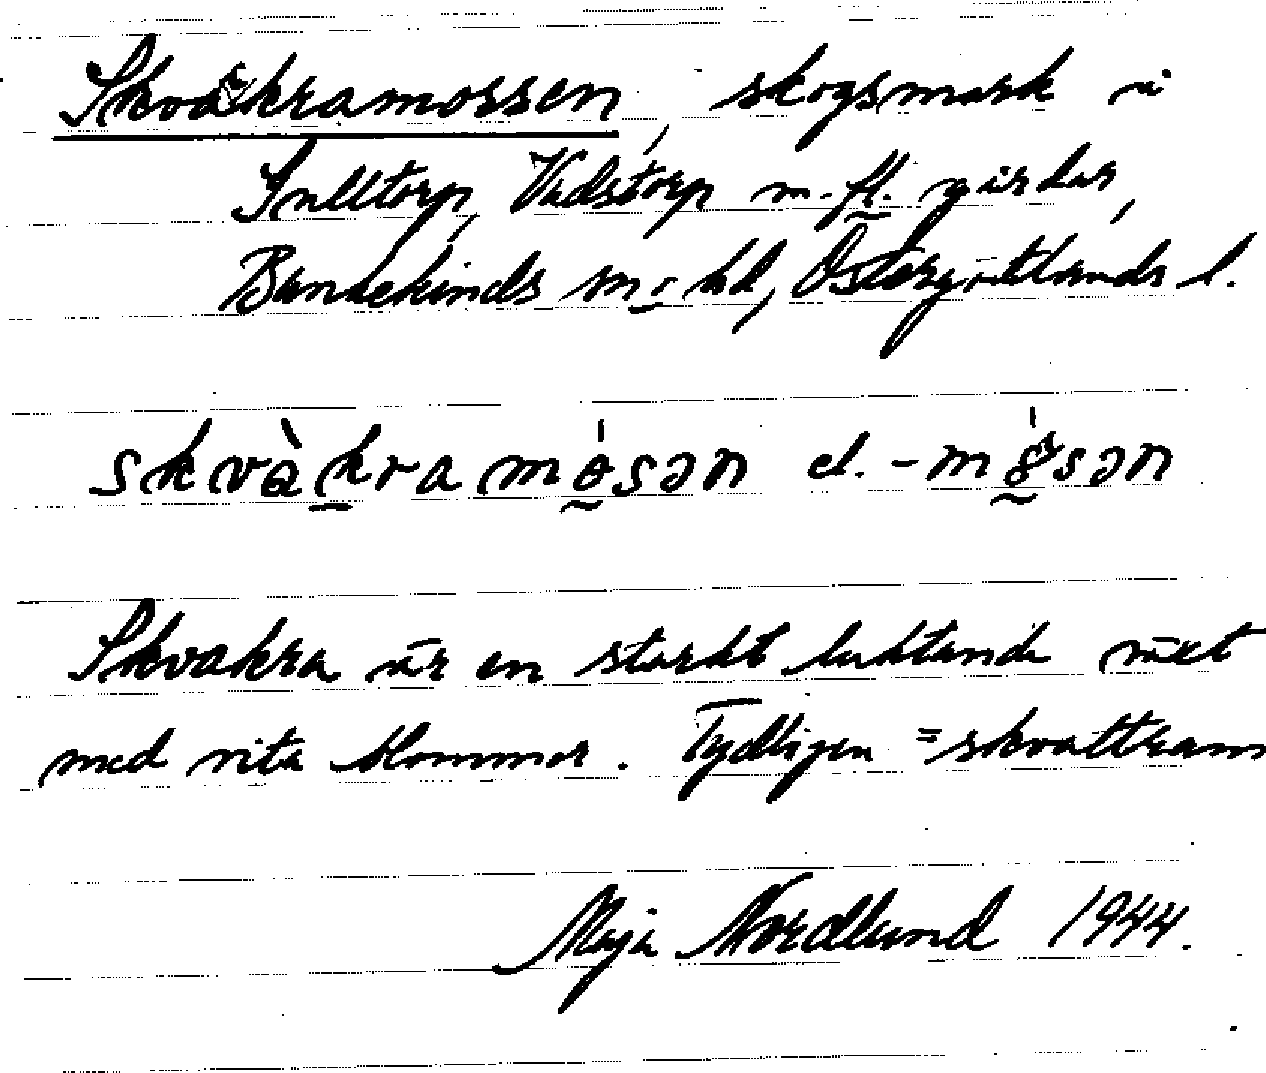 Skvakramossen, skogsmark i
Sulltorp, Vadstorp m.fl. gårdar,
Bankekinds sn o hd, Östergötlands l.
skvàkramɵsən el. -mɵsən
Skvakra är en starkt luktande växt
med vita blommor. Tydligen = skvattram
Maja Nordlund 1944.